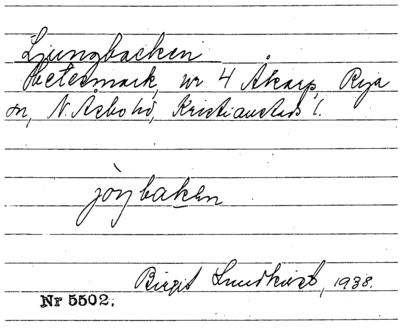 Ljungbacken
Betesmark, nr 4 Åkarp, Rya
sn, N. Åsbo hd, Kristianstads l.
jöŋbaken
Birgit Lundkvist, 1938.
Nr 5502.